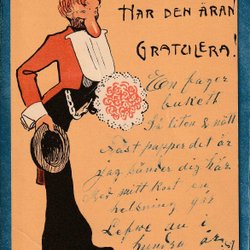 HAR DEN ÄRAN
GRATULERA!
En fager
bukett
Så liten & nätt
Fast papper det är
jag sänder dig här
Med mitt kort en
helsning
Lefve du i
hundra år